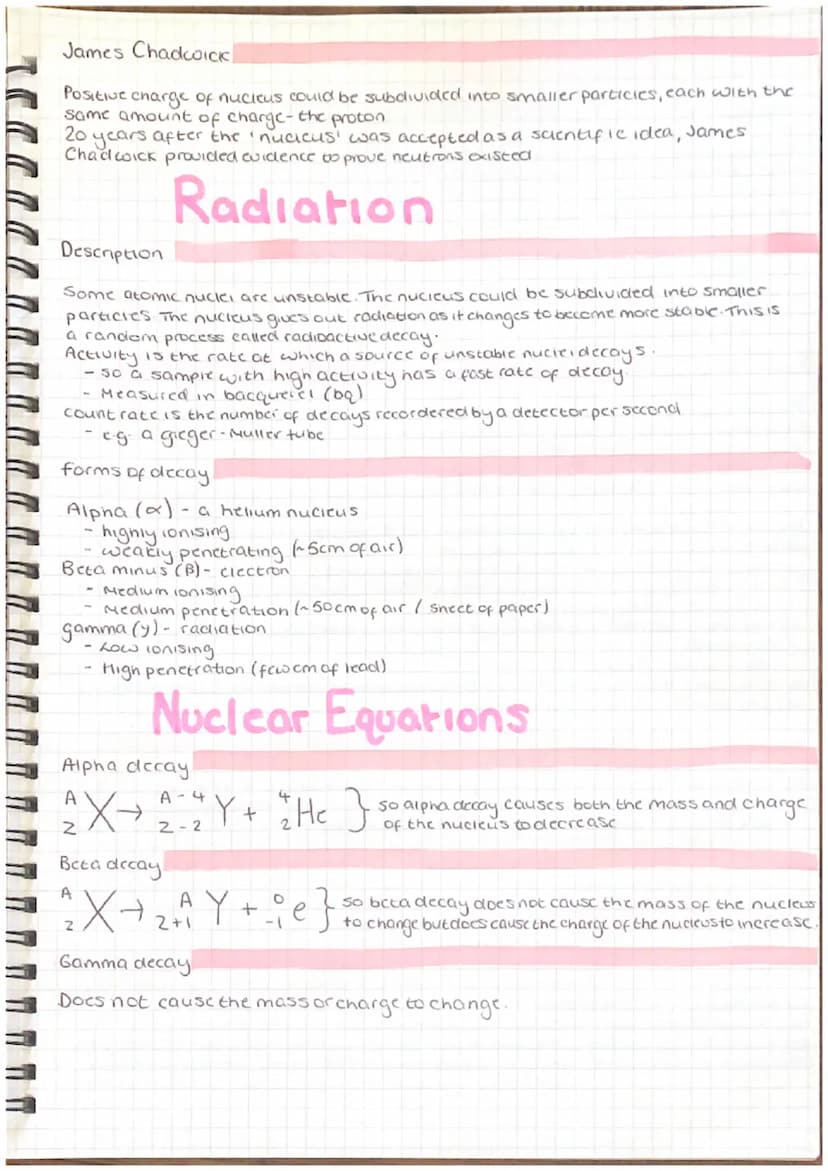 James Chadwick
Positive charge of nucleus could be subdivided into smaller particles, each with the
same amount of charge - the proton
20 years after the 'nucleus' was accepted as a scientific idea, James
Chadwick provided evidence to prove neutrons existed
Radiation
Description
Some atomic nuclei are unstable. The nucleus could be subdivided into smaller
particles The nucleus gives out radiation as it changes to become more stable. This is
a random process called radioactive decay.
Activity is the rate at which a source of unstable nuclei decays.
- so a sample with high activity has a fast rate of decay.
- Measured in bacquerel (bq)
count rate is the number of decays recordered by a detector per second
- e.g. a gieger - Muller tube
forms of decay
Alpha (α) - a helium nucleus
- highly ionising
- weakly penetrating (~5cm of air)
Beta minus (β) - electron
- Medium ionising
- Medium penetration (~50cm of air / sheet of paper)
gamma (γ) - radiation
- Low ionising
- High penetration (few cm of lead)
Nuclear Equations
Alpha decay
A Z X → A-4 Z-2 Y + 4 2 He } so alpha decay causes both the mass and charge
of the nucleus to decrease
Beta decay
A Z X → A Z+1 Y + 0 -1 e } so beta decay does not cause the mass of the nucleus
to change but does cause the charge of the nucleus to increase.
Gamma decay
Does not cause the mass or charge to change.